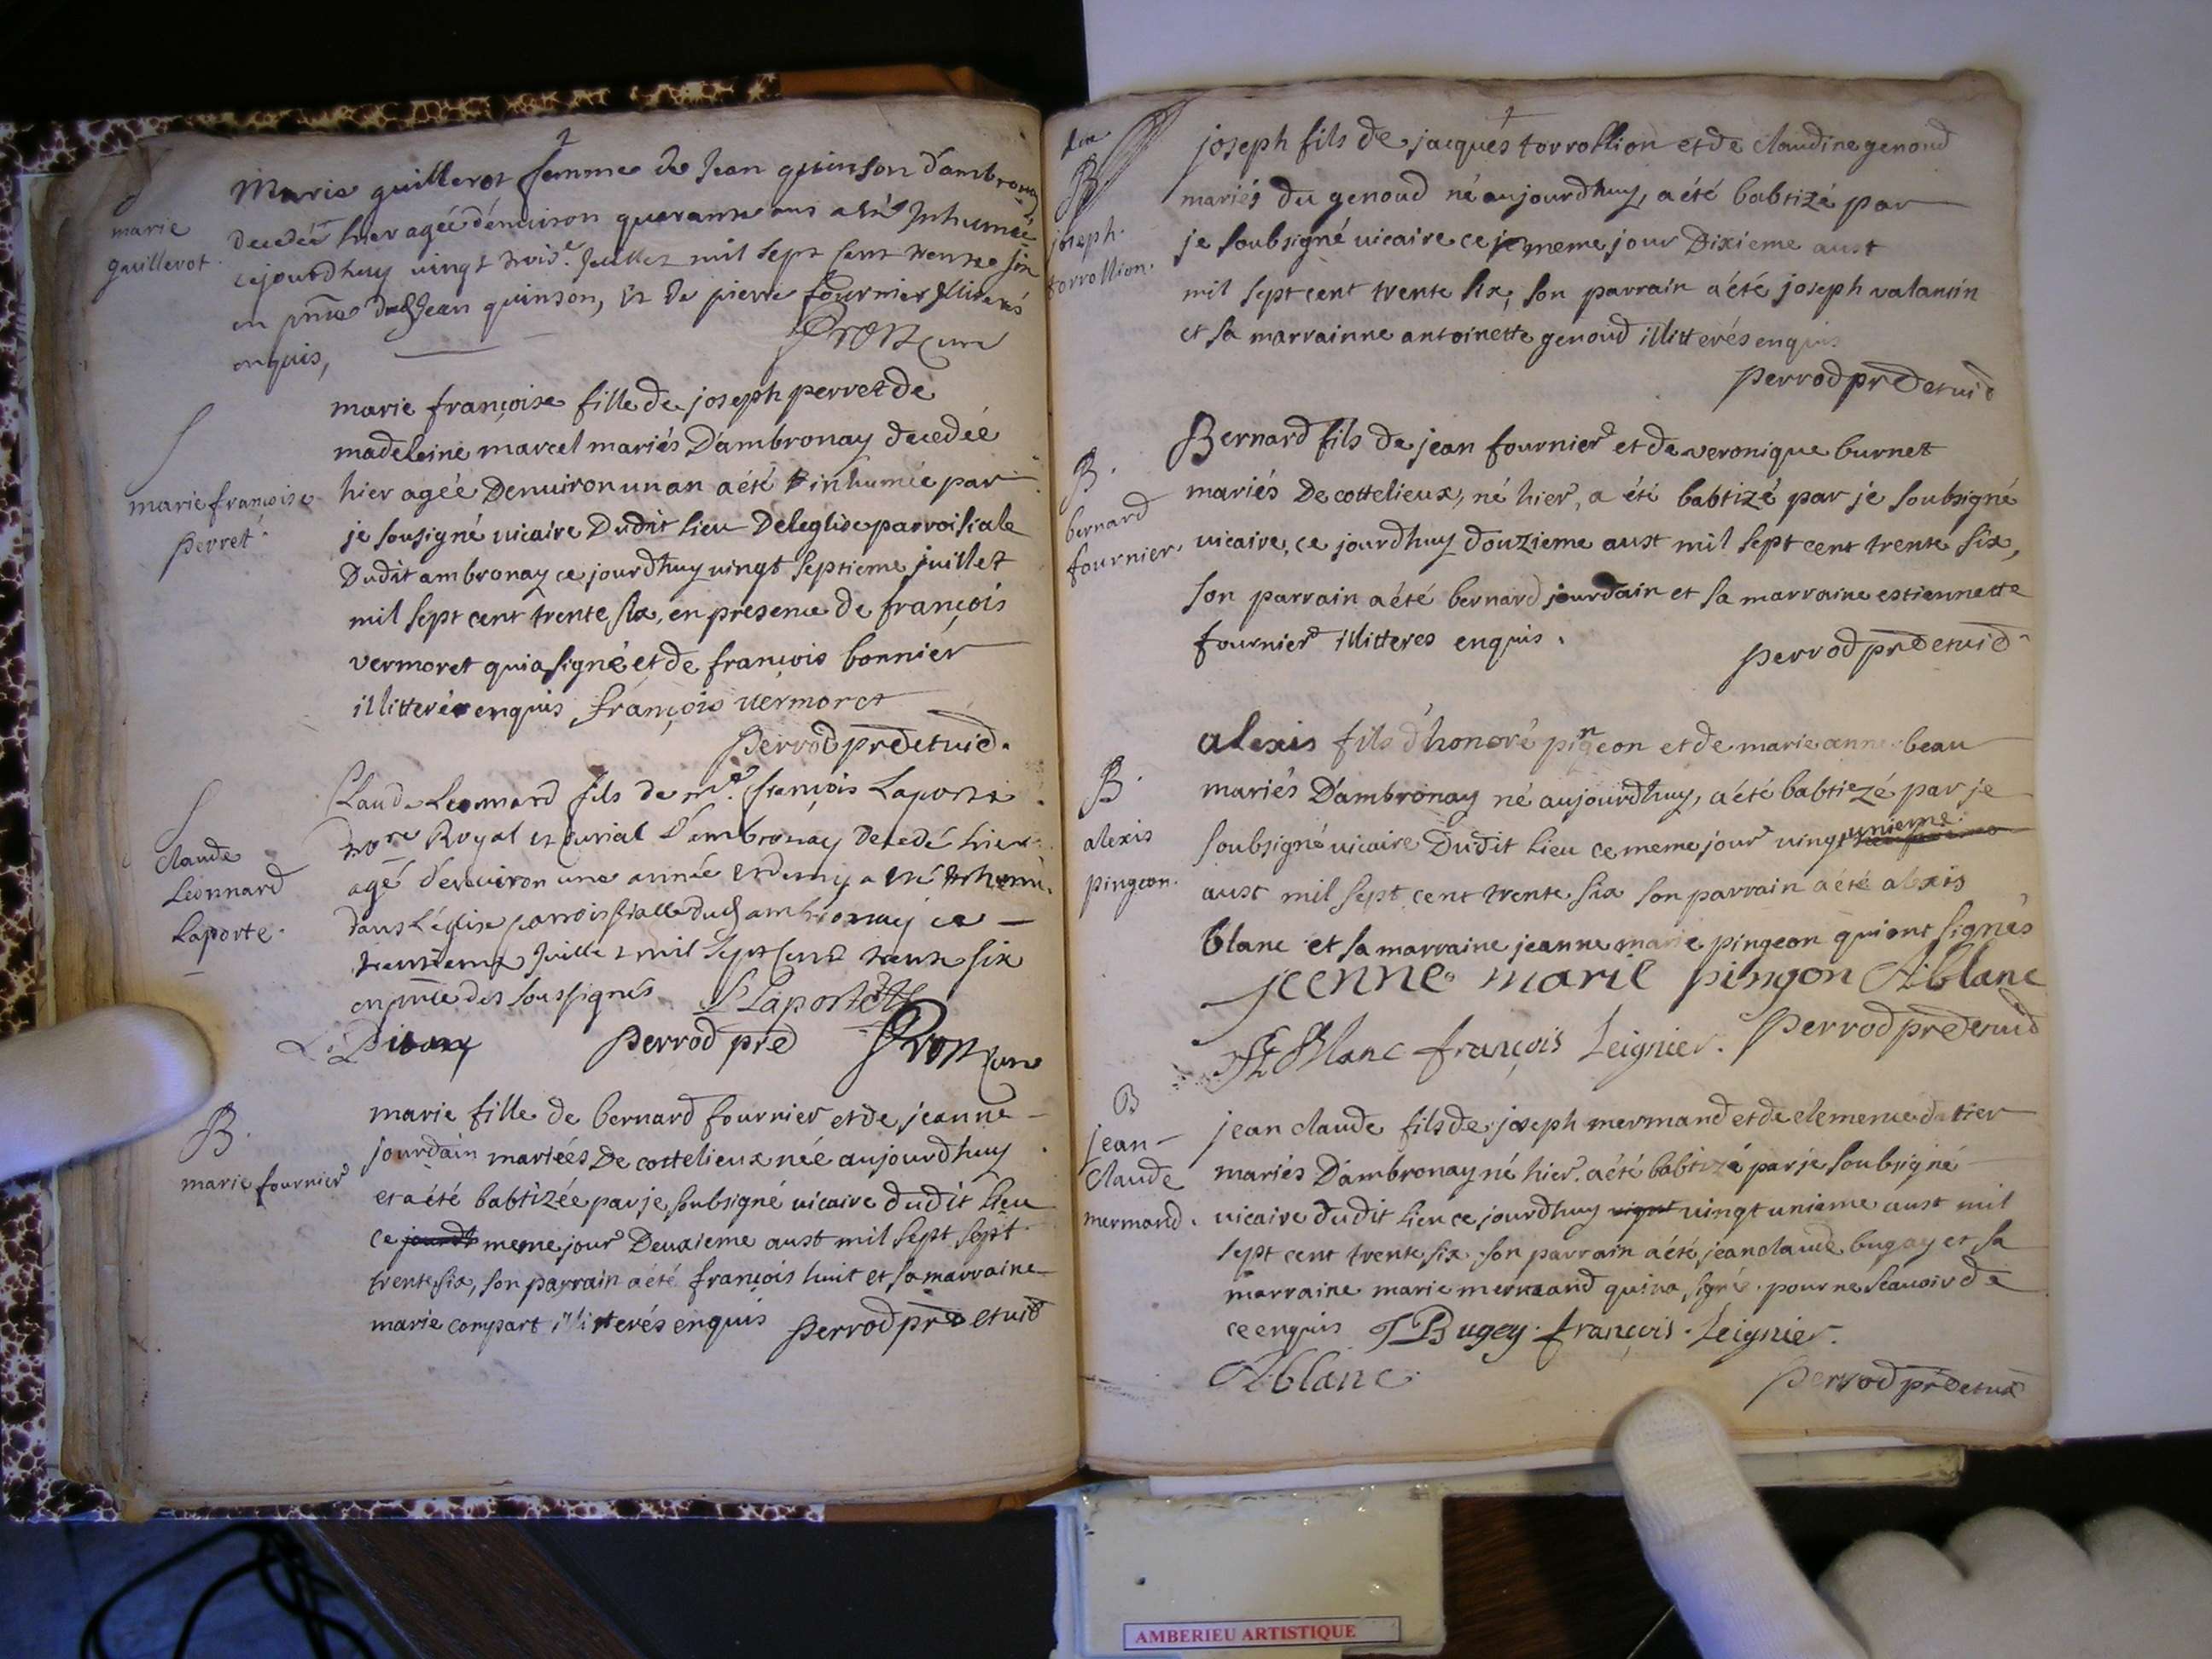 marie
guillerot
Marie guillerot femme de Jean quinson d'ambronay
decedéé hier agéé d'enuiron quarante ans a été Inhumeé
cejourdhuy uingt trois.e Juillet mil sept cent trente six
en pnce dud Jean quinson, et de pierre fournier Illiterés
enquis,
Pron Curé
marie francoise
perret
marie françoise fille de joseph perret de
madeleine marcel mariés D'ambronay decedéé
hier ageé Denuiron un an a été inhumée par
je sousigné uicaire Dudit lieu De leglise parroisiale
Dudit ambronay ce jourdhuy uingt septieme juillet
mil sept cent trente six, en presence de françois
vermoret qui a signé et de francois bonnier
illitterés enquis françois uermoret
perrod prê et uic
claude
Leonnard
Laporte
Claude Leonnard fils de mr. françois Laporte
nore Royal et Curial d'ambronay decedé hier
agé d'enuiron une année et demy a été Inhumé
dans L'église parroissialle dud ambronay ce
trentieme Juillet mil sept Cent trente six
en pnce des soussignés LLaporte
perrod prê Pron Curé
B.
marie fournier
marie fille de bernard fournier et de jeanne
jourdain mariéés De cottelieux néé aujourdhuy
et a été babtizée par je soubsigné uicaire dudit lieu
ce jourdh meme jour Deuxieme aust mil sept sept
trente six, son parrain a été françois huit et sa marraine
marie compart illitterés enquis perrod prê et uic
B
joseph
torrollion.
joseph fils de jacques torrollion et de claudine genoud
mariés du genoud né aujourdhuy, a été babtizé par
je soubsigné uicaire ce je meme jour Dixieme aust
mil sept cent trente six, son parrain a été joseph valantin
et sa marrainne antoinette genoud illitterés enquis
perrod prê et uic
B.
bernard
fournier.
Bernard fils de jean fournier et de veronique burnet
mariés De cottelieux, né hier, a été babtizé par je soubsigné
uicaire, ce jourdhuy douzieme aust mil sept cent trente six,
son parrain a été bernard jourdain et sa marraine estiennette
fournier illitteres enquis.
perrod prê et uic
B.
alexis
pingeon.
alexis fils d'honoré pingeon et de marie anne beau
mariés D'ambronay né aujourdhuy, a été babtiezé par je
soubsigné uicaire Dudit lieu ce meme jour uingt unieme
aust mil sept cent trente six son parrain a été alexis
blanc et sa marraine jeanne marie pingeon qui ont signés
jeenne marie pingon A blanc
Blanc françois Leignier. perrod prê et uic
B
jean
claude
mermand.
jean claude fils de joseph mermand et de clemence datier
mariés D'ambronay né hier. a été babtizé par je soubsigné
uicaire dudit lieu ce jourdhuy uignt uingt unieme aust mil
sept cent trente six. son parrain a été jean claude bugay et sa
marraine marie mermand qui na signé. pour ne scauoir de
ce enquis J Bugey. françois. Leignier.
A blanc.
perrod prê et uic
AMBERIEU ARTISTIQUE